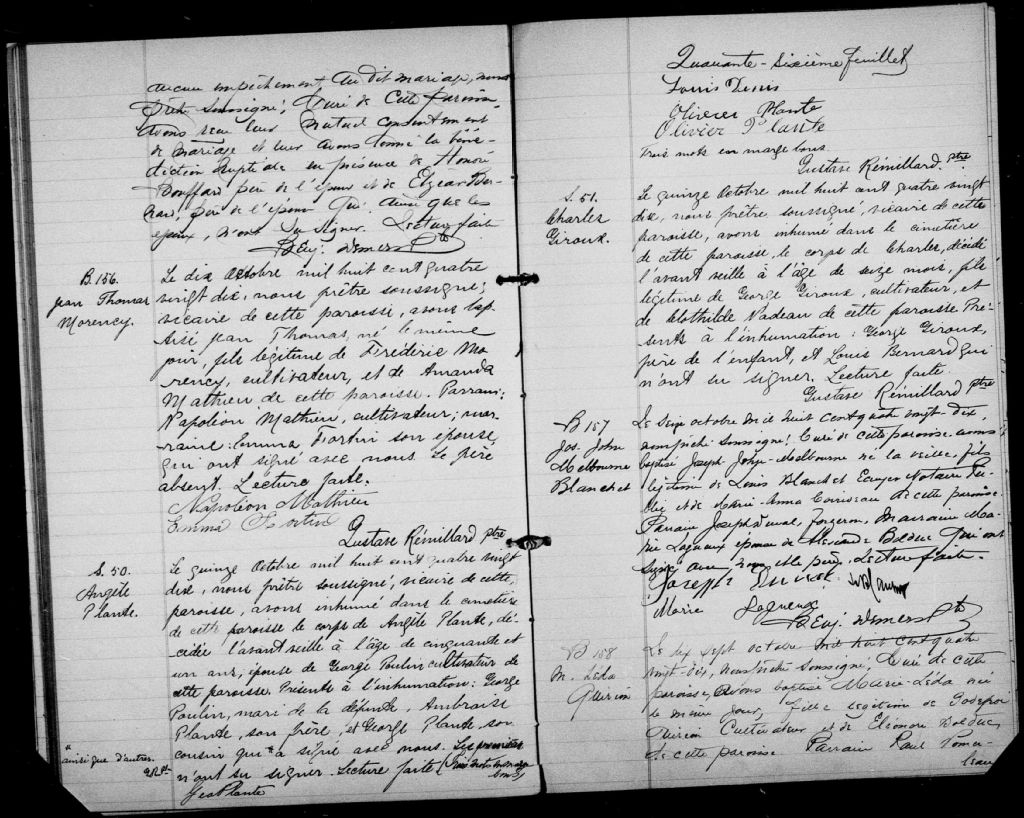 aucun empêchement au dit mariage, nous
Prêtre soussigné, Curé de cette paroisse
Avons reçu leur mutuel consentement
de mariage et leur avons donné la béné-
diction nuptiale en présence de Honoré
Bouffard père de l'époux et de
père de l'épouse qui ainsi que les
époux, n'ont su signer. Lecture faite
B.Eug. Demers Ptre
B. 156.
Jean Thomas
Morency.
Le dix Octobre mil huit cent quatre
vingt dix, nous prêtre soussigné,
vicaire de cette paroisse, avons bap-
tisé Jean Thomas, né le même
jour, fils légitime de Frédéric Mo-
rency, cultivateur, et de Amanda
Mathieu de cette paroisse. Parrain:
Napoléon Mathieu, cultivateur; mar-
raine: Emma Fortin son épouse,
qui ont signé avec nous. Le père
absent. Lecture faite.
Napoléon Mathieu
Emma Fortin
Gustave Rémillard ptre
S. 50.
Angèle
Plante.
Le quinze Octobre mil huit cent quatre vingt
dix, nous prêtre soussigné, vicaire de cette
paroisse, avons inhumé dans le cimetière
de cette paroisse le corps de Angèle Plante, dé-
cédée l'avant veille à l'âge de cinquante et
un ans, épouse de George Poulin cultivateur de
cette paroisse. Présents à l'inhumation: George
Poulin, mari de la défunte, Ambroise
Plante, son frère, et George Plante, son
cousin qui a signé avec nous. Les premiers
" ainsi que d'autres.
G.R. Ptre
n'ont su signer. Lecture faite. (Trois mots en marge
bons)
Geo Plante
Quarante-sixième feuillet
Louis Denis
Olivier Plante
Olivier Plante
Trois mots en marge bons.
Gustave Rémillard. ptre
S. 51.
Charles
Giroux.
Le quinze Octobre mil huit cent quatre vingt
dix, nous prêtre, soussigné, vicaire de cette
paroisse, avons inhumé dans le cimetière
de cette paroisse, le corps de Charles, décédé
l'avant veille à l'âge de seize mois, fils
légitime de George Giroux, cultivateur, et
de Clothilde Nadeau de cette paroisse. Pré-
sents à l'inhumation: George Giroux,
père de l'enfant, et Louis Bernard qui
n'ont su signer. Lecture faite.
Gustave Rémillard ptre
B 157
Jos. John
Melbourne
Blanchet
Le seize octobre mil huit cent quatre vingt-dix,
nous prêtre soussigné, Curé de cette paroisse avons
baptisé Joseph John-Melbourne né la veille, fils
légitime de Louis Blanchet Ecuyer Notaire Pu-
blic et de Marie-Anna de cette paroisse.
Parrain Joseph Duval, forgeron, Marraine Ma-
rie Lagueux épouse de Bolduc qui ont
signé avec nous et le père. Lecture faite.
Joseph Duval
Marie Lagueux
B.Eug. Demers Ptre
B 158
M. Léda
Quirion
Le dix sept octobre mil huit cent quatre
vingt-dix, nous prêtre soussigné, Curé de cette
paroisse, avons baptisé Marie-Léda née
le même jour, fille légitime de Godefroi
Quirion Cultivateur et de Eléonore Bolduc
de cette paroisse Parrain Paul Pomer-
leau